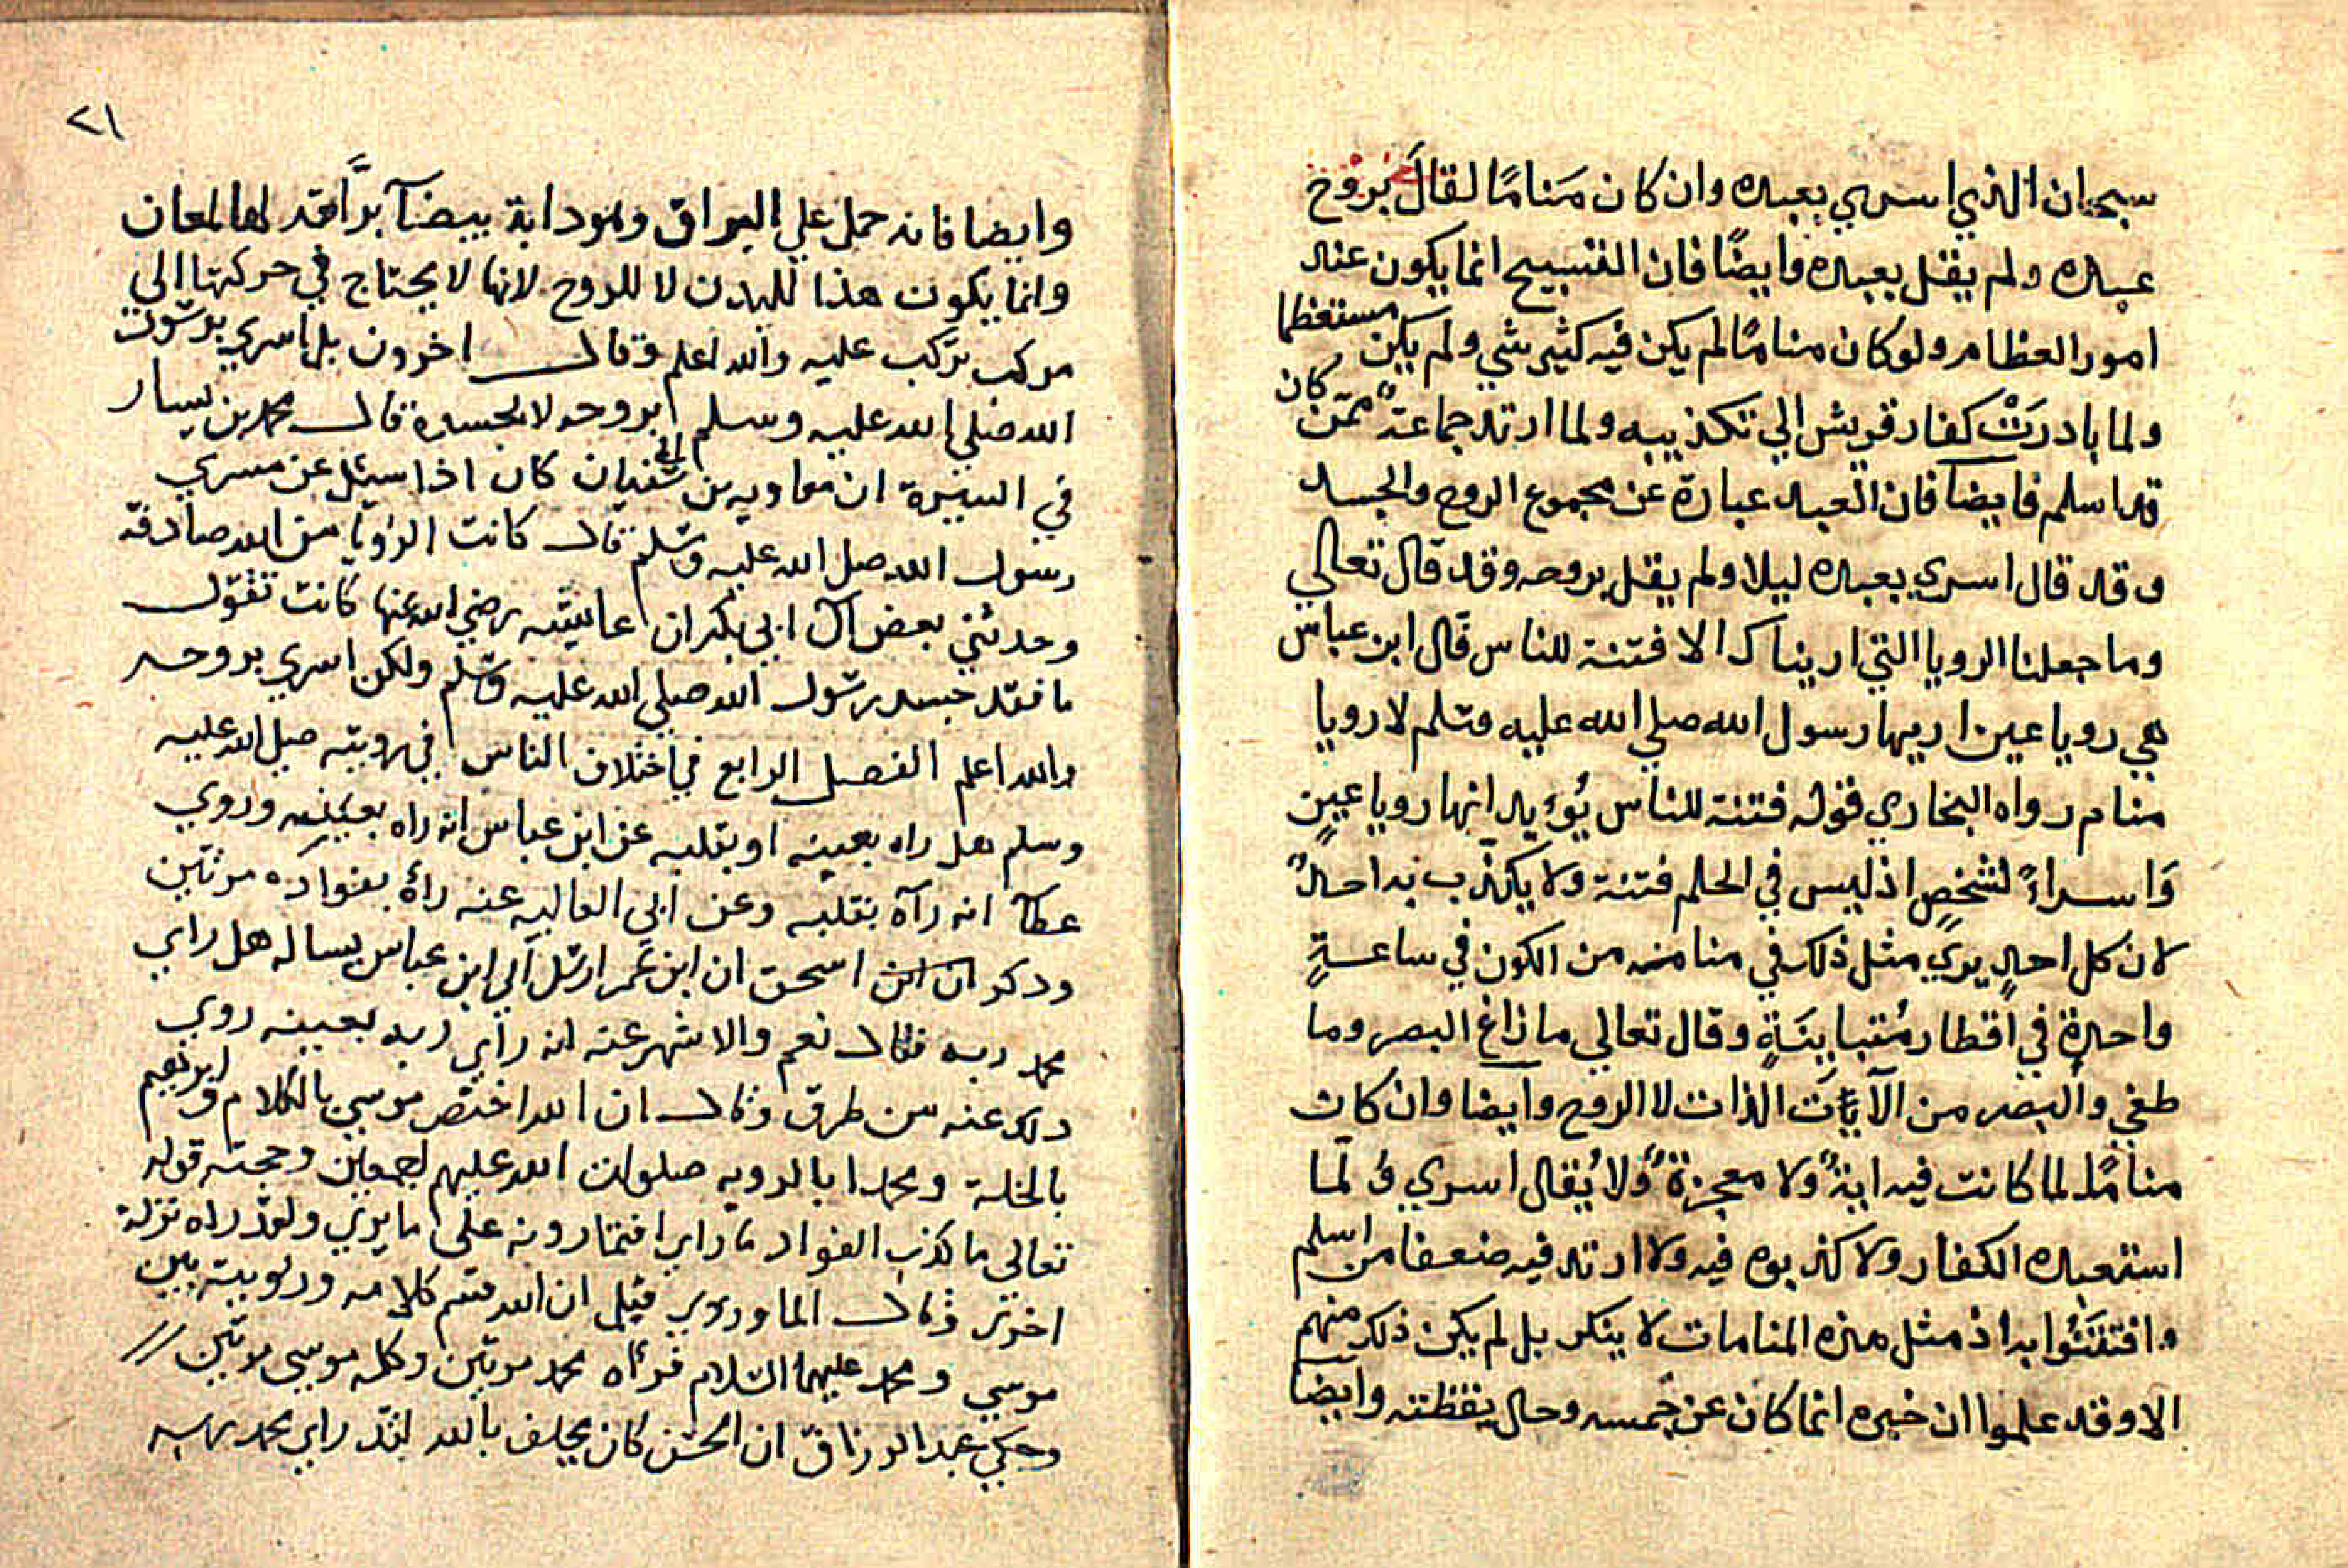 سبحان الذي اسري بعبده وان كان مَنامًا لقالَ بروح
عبده ولم يقل بعبده وايضًا فان التسبيح انما يكون عند
امور العظام ولو كان منامًا لم يكن فيه كثير شي ولم يكن مستعظما
ولما بادرَتْ كفار قريش الي تكذيبه ولما ارتد جماعةً ممّن كان
قد اسلم فايضا فان العبد عبارة عن مجموع الروح والجسد
وقد قال اسري بعبده ليلا ولم يقل بروحه وقد قال تعالي
وما جعلنا الرويا التي اريناك الا فتنة للناس قال ابن عباس
هي رويا عين اريها رسول الله صلي الله عليه وسلم لا رويا
منام رواه البخاري فقوله فتنة للناس يُؤيد انها رويا عينٍ
وَاسراءً لشخصٍ اذ ليس في الحلم فتنة ولا يكذّب به احدٌ
لان كل احدٍ يري مثل ذلك في منامه من الكون في ساعةٍ
واحدةٍ في اقطار مُتباينَةٍ وقال تعالي ما زاغ البصر وما
طغي والبصر من الآيات الذات لا الروح وايضا وان كان
منامًا لما كانت فيه ايةً ولا معجزةً ولا يُقال اسري ولمّا
استعبده الكفار ولا كذبوه فيه ولا ارتد فيه ضعفا من اسلم
وافتتَنُوا به اذ مثل هذه المنامات لا ينكر بل لم يكن ذلك منهم
الا وقد علموا ان خبره انما كان عن جسمه وحال يقظته وايضا
٢١
وايضا فانه حمل علي البراق وهو دابة بيضآ برَّاقة لها لمعان
وانما يكون هذا للبدن لا للروح لانها لا يحتاج في حركتها الي
مركب تركب عليه والله اعلم وقال اخرون بل اسري برسول
الله صلي الله عليه وسلم بروحه لا بجسده قال محمد بن يسار
في السيرة ان معاويه بن ابي سفيان كان اذا سيئل عن مسري
رسول الله صل الله عليه وسلم قال كانت الرويا من الله صادقة
وحدثني بعض آل ابي بكر ان عاييشه رضي الله عنها كانت تقول
ما فقد جسد رسول الله صلي الله عليه وسلم ولكن اسري بروحه
والله اعلم الفصل الرابع في اختلاف الناس في رويته صلي الله عليه
وسلم هل راه بعينه او بقلبه عن ابن عباس انه راه بعينه وروي
عطآ انه رآه بقلبه وعن ابي العاليه عنه رأه بفواده مرتين
وذكر ان ابن اسحق ان ابن عمر ارسل الي ابن عباس يساله هل راي
محمد ربه فقال نعم والاشهر عنه انه راي ربه بعينه روي
ذلك عنه من طرق وقال ان الله اختص موسي بالكلام وابرهيم
بالخلة ومحمدا بالرويه صلوات الله عليهم اجمعين وحجته قوله
تعالي ما كذب الفواد ما راي افتمارونه علي ما يري ولقد راه نزلة
اخري وقال الماوردي قيل ان الله قسم كلامه ورويته بين
موسي ومحمد عليهما السلام فرأه محمد مرتين وكلم موسي مرتين
وحكي عبد الرزاق ان الحسن كان يحلف بالله لقد راي محمد ربه